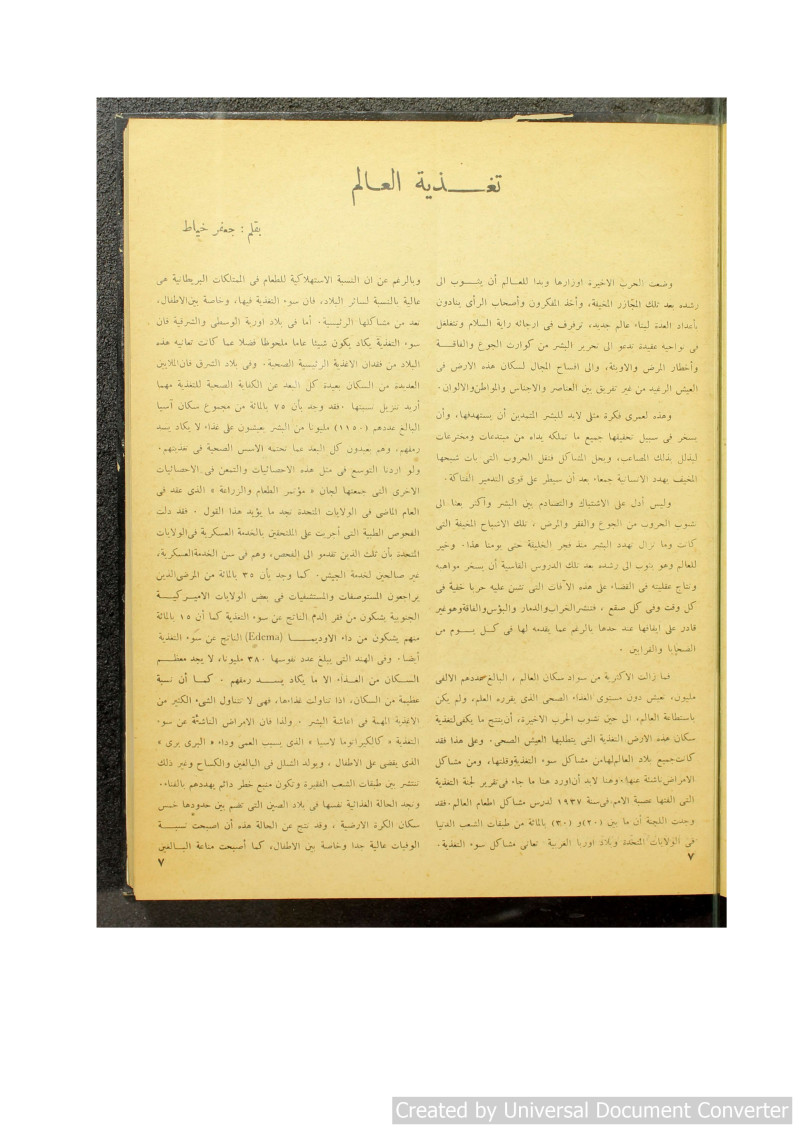 تغـــذية العـالم
بقلم : جعفر خياط
وضعت الحرب الاخيرة اوزارها وبدا للعـالم أن يثـوب الى
رشده بعد تلك المجازر المخيفة، وأخذ المفكرون وأصحاب الرأى ينادون
بأعداد العدة لبناء عالم جديد، ترفرف فى ارجائه راية السلام وتتغلغل
فى نواحيه عقيدة تدعو الى تحرير البشر من كوارث الجوع والفاقـــة
وأخطار المرض والاوبئة، والى افساح المجال لسكان هذه الارض فى
العيش الرغيد من غير تفريق بين العناصر والاجناس والمواطن والالوان.
وهذه لعمرى فكرة مثلى لابد للبشر المتمدين أن يستهدفها، وأن
يسخر فى سبيل تحقيقها جميع ما تملكه يداه من مبتدعات ومخترعات
ليذلل بذلك المصاعب، ويحل المشاكل فتقل الحروب التى بات شبحها
المخيف يهدد الانسانية جمعاء بعد أن سيطر على قوى التدمير الفتاكة.
وليس أدل على الاشتباك والتصادم بين البشر وأكثر بعثا الى
نشوب الحروب من الجوع والفقر والمرض ، تلك الاشباح المخيفة التى
كانت وما تزال تهدد البشر منذ فجر الخليقة حتى يومنا هذا. وخير
للعالم وهو يثوب الى رشده بعد تلك الدروس القاسية أن يسخر مواهبه
ونتاج عقليته فى القضاء على هذه الآفات التى تشن عليه حربا خفية فى
كل وقت وفى كل صقع ، فتنشر الخراب والدمار والبؤس والفاقة وهو غير
قادر على ايقافها عند حدها بالرغم عما يقدمه لها فى كـــل يـــوم من
الضحايا والقرابين .
فما زالت الاكثرية من سواد سكان العالم ، البالغ عددهم الالفى
مليون، تعيش دون مستوى الغذاء الصحى الذى يقرره العلم، ولم يكن
باستطاعة العالم، الى حين نشوب الحرب الاخيرة، أن ينتج ما يكفى لتغذية
سكان هذه الارض التغذية التى يتطلبها العيش الصحى. وعلى هذا فقد
كانت جميع بلاد العالم لها من مشاكل سوء التغذية وقلتها، ومن مشاكل
الامراض ناشئة عنها، وهنا لابد أن اورد هنا ما جاء فى تقرير لجنة التغذية
التى الفتها عصبة الامم، فى سنة ١٩٣٧ لدرس مشاكل اطعام العالم. فقد
وجدت اللجنة أن ما بين (٢٠) و (٣٠) بالمائة من طبقات الشعب الدنيا
فى الولايات المتحدة وبلاد اوربا الغربية تعانى مشاكل سوء التغذية.
٧
وبالرغم عن ان النسبة الاستهلاكية للطعام فى الممتلكات البريطانية هى
عالية بالنسبة لسائر البلاد، فان سوء التغذية فيها، وخاصة بين الاطفال،
تعد من مشاكلها الرئيسية. أما فى بلاد اوربة الوسطى والشرقية فان
سوء التغذية يكاد يكون شيئا عاما ملحوظا فضلا عما كانت تعانيه هذه
البلاد من فقدان الاغذية الرئيسية الصحية. وفى بلاد الشرق فان الملايين
العديدة من السكان بعيدة كل البعد عن الكفاية الصحية للتغذية مهما
أريد تنزيل نسبتها .فقد وجد بأن ٧٥ بالمائة من مجموع سكان آسيا
البالغ عددهم (١١٥٠) مليونا من البشر يعيشون على غذاء لا يكاد يسد
رمقهم، وهم بعيدون كل البعد عما تحتمه الاسس الصحية فى تغذيتهم.
ولو اردنا التوسع فى مثل هذه الاحصائيات والتمعن فى الاحصائيات
الاخرى التى جمعتها لجان « مؤتمر الطعام والزراعة » الذى عقد فى
العام الماضى فى الولايات المتحدة نجد ما يؤيد هذا القول . فقد دلت
الفحوص الطبية التى أجريت على الملتحقين بالخدمة العسكرية فى الولايات
المتحدة بأن ثلث الذين تقدموا الى الفحص، وهم فى سن الخدمة العسكرية،
غير صالحين لخدمة الجيش. كما وجد بأن ٣٥ بالمائة من المرضى الذين
يراجعون المستوصفات والمستشفيات فى بعض الولايات الاميركيــة
الجنوبية يشكون من فقر الدم الناتج عن سوء التغذية كما أن ١٥ بالمائة
منهم يشكون من داء الاوديمـــا (Edema) الناتج عن سوء التغذية
أيضا. وفى الهند التى يبلغ عدد نفوسها ٣٨٠ مليونا، لا يجد معظـــم
السكـان من الغـذاء الا ما يكاد يســـد رمقهم . كمـا أن نسبة
عظيمة من السكان، اذا تناولت غذاءها، فهى لا تتناول الشىء الكثير من
الاغذية المهمة فى اعاشة البشر . ولذا فان الامراض الناشئة عن سوء
التغذية « كالكيراتوما لاسيا » الذى يسبب العمى وداء « البرى برى »
الذى يقضى على الاطفال ، ويولد الشلل فى البالغين والكساح وغير ذلك
تنتشر بين طبقات الشعب الفقيرة وتكون منبع خطر دائم يهددهم بالفناء.
ونجد الحالة الغذائية نفسها فى بلاد الصين التى تضم بين حدودها خمس
سكان الكرة الارضية ، وقد نتج عن الحالة هذه أن اصبحت نسبــة
الوفيات عالية جدا وخاصة بين الاطفال، كما أصبحت مناعة البـالغين
٧
Created by Universal Document Converter